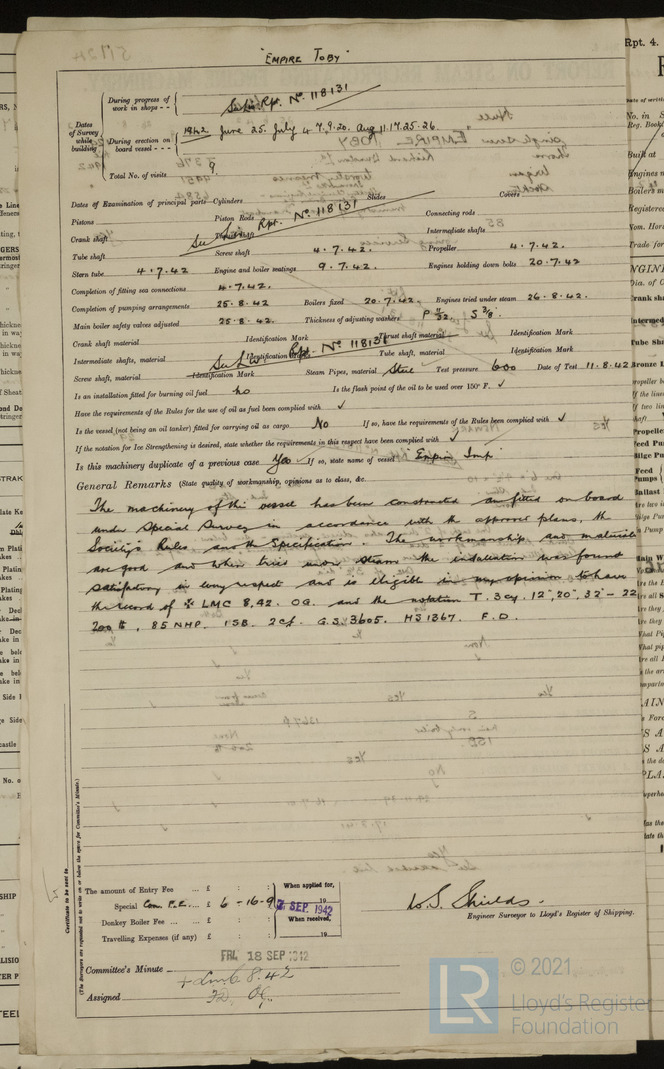 "EMPIRE TOBY"
Rpt. 4.
Dates of Survey while building
During progress of work in shops - -
See Lis. Rpt. No. 118131
During erection on board vessel - - -
1942 June 25. July 4. 7. 9. 20. Aug 11. 17. 25. 26.
Total No. of visits 9
Dates of Examination of principal parts—Cylinders Slides Covers
Pistons Piston Rods Connecting rods
See Lis. Rpt. No. 118131
Crank shaft Thrust shaft Intermediate shafts
Tube shaft Screw shaft 4.7.42. Propeller 4.7.42.
Stern tube 4.7.42 Engine and boiler seatings 9.7.42. Engines holding down bolts 20.7.42
Completion of fitting sea connections 4.7.42.
Completion of pumping arrangements 25.8.42 Boilers fixed 20.7.42. Engines tried under steam 26.8.42.
Main boiler safety valves adjusted 25.8.42. Thickness of adjusting washers P 11/32 S 3/8.
Crank shaft material Identification Mark Thrust shaft material Identification Mark
See Lis Rpt. No 118131
Intermediate shafts, material Identification Marks Tube shaft, material Identification Mark
Screw shaft, material Identification Mark Steam Pipes, material Steel Test pressure 600 Date of Test 11.8.42
Is an installation fitted for burning oil fuel No Is the flash point of the oil to be used over 150° F. ✓
Have the requirements of the Rules for the use of oil as fuel been complied with ✓
Is the vessel (not being an oil tanker) fitted for carrying oil as cargo. No If so, have the requirements of the Rules been complied with ✓
If the notation for Ice Strengthening is desired, state whether the requirements in this respect have been complied with ✓
Is this machinery duplicate of a previous case Yes If so, state name of vessel "Empire Imp"
General Remarks (State quality of workmanship, opinions as to class, &c.
The machinery of this vessel has been constructed and fitted on board
under Special Survey in accordance with the approved plans, the
Society's Rules and the Specification. The workmanship and materials
are good and when tried under steam the installation was found
satisfactory in every respect and is eligible in my opinion to have
the record of ✠ LMC 8,42. OG. and the notation T. 3cy. 12", 20", 32" - 22
200 lb, 85 NHP. 1SB. 2cf. G.S. 3605. HS 1367. F.D.
Certificate to be sent to
(The Surveyors are requested not to write on or below the space for Committee's Minute.)
The amount of Entry Fee ... £ : : When applied for,
Special Com. P.E. ... £ 6 - 16 - 9 SEP. 1942
Donkey Boiler Fee ... ... £ : : When received,
Travelling Expenses (if any) £ : : 19
W. S. Shields.
Engineer Surveyor to Lloyd's Register of Shipping.
FRI. 18 SEP 1942
Committee's Minute + LMC 8.42
Assigned FD. OG.
LR
© 2021
Lloyd's Register
Foundation